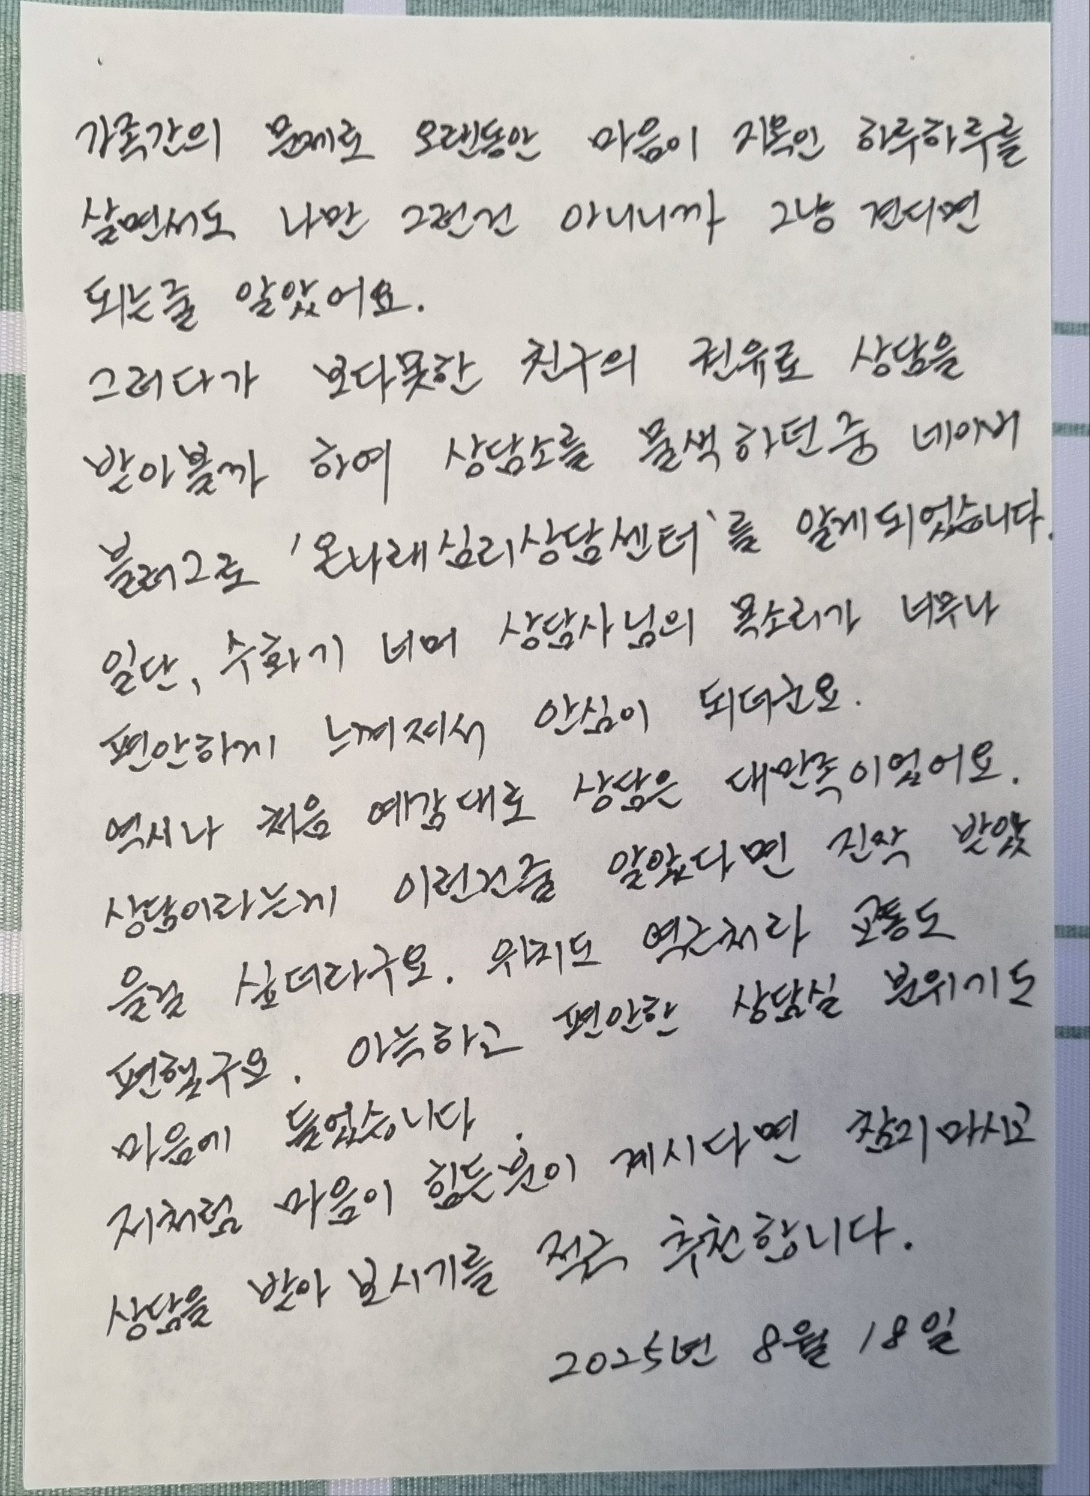 가족간의 문제로 오랜동안 마음이 지옥인 하루하루를
살면서도 나만 그런건 아니니까 그냥 견디면
되는줄 알았어요.
그러다가 보다못한 친구의 권유로 상담을
받아볼까 하여 상담소를 물색하던중 네이버
블러그로 '온나래심리상담센터'를 알게되었습니다.
일단, 수화기 너머 상담사님의 목소리가 너무나
편안하게 느껴져서 안심이 되더군요.
역시나 처음 예감대로 상담은 대만족이었어요.
상담이라는게 이런건줄 알았다면 진작 받았
을걸 싶더라구요. 위치도 역근처라 교통도
편했구요. 아늑하고 편안한 상담실 분위기도
마음에 들었습니다.
저처럼 마음이 힘든분이 계시다면 참지마시고
상담을 받아 보시기를 적극 추천합니다.
2025년 8월 18일